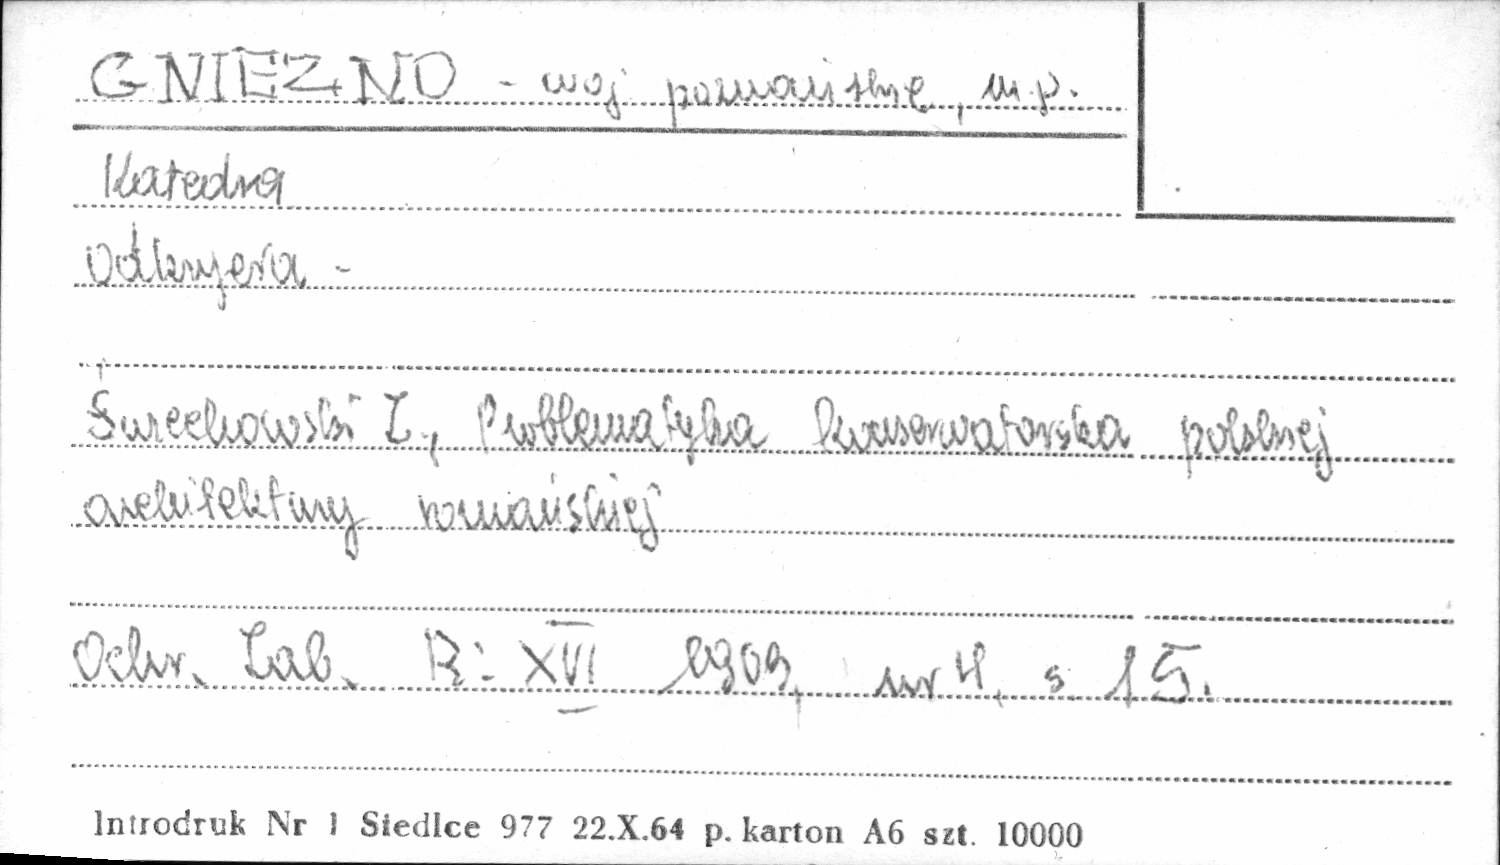 GNIEZNO - woj poznańskie, m.p.
Katedra
Odkrycia -
Świechowski Z., Problematyka konserwatorska polskiej
architektury romańskiej
Ochr. Zab. R: XVI 1963, nr 4, s 15.
Introdruk Nr 1 Siedlce 977 22.X.64 p. karton A6 szt. 10000